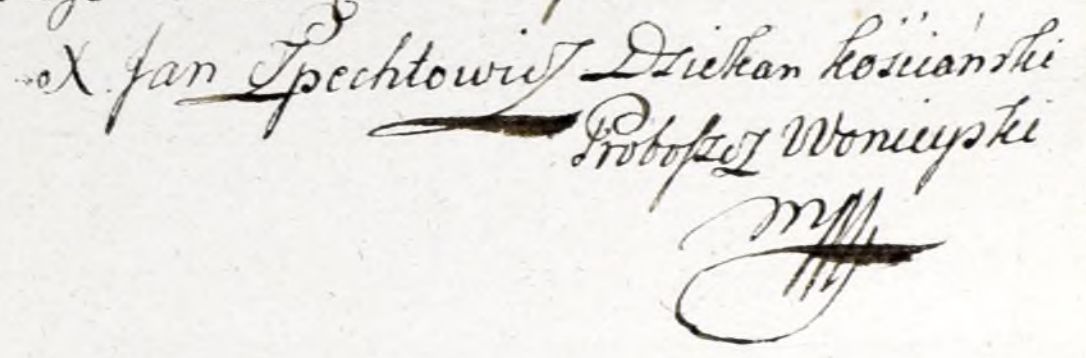 X. Jan Spechtowicz Dziekan kościański
Proboszcz Wonieyski
mpp